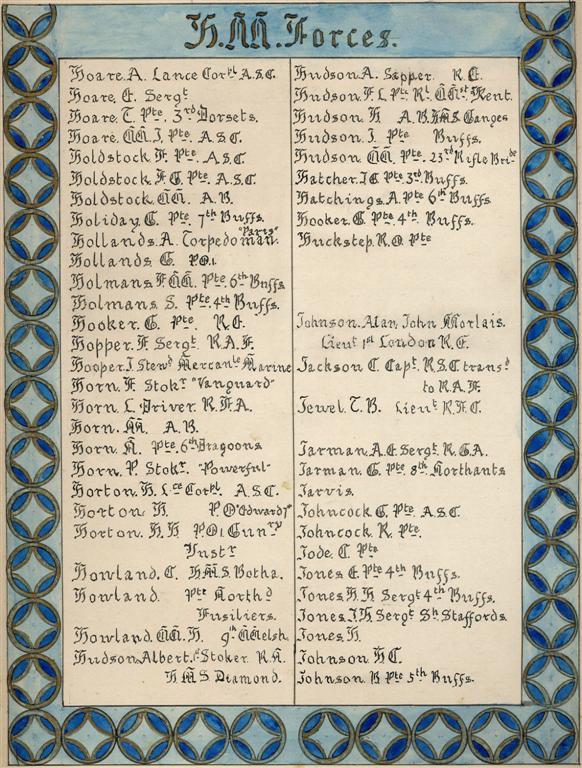 H.M. Forces.
Hoare. A. Lance Corpl. A.S.C.
Hoare, E. Sergt
Hoare. T. Pte. 3rd Dorsets.
Hoare. W. J. Pte. A.S.C.
Holdstock. F. Pte. A.S.C
Holdstock. F. G. Pte. A.S.C.
Holdstock. W. A.B.
Holiday. C. Pte. 7th Buffs.
Hollands. A. Torpedoman. "Paris"
Hollands G. P.O.1.
Holmans. F. W. Pte 6th Buffs
Holmans S. Pte. 4th Buffs.
Hooker. G. Pte. R.E.
Hopper. F. Sergt. R.A.F.
Hooper. J Stewd Mercanle Marine
Horn. F. Stokr "Vanguard"
Horn. L. Driver. R.F.A.
Horn. M. A.B.
Horn. N. Pte. 6th Dragoons
Horn. P. Stokr. "Powerful"
Horton. H. Lce Corpl. A.S.C.
Horton H. P.O.
Horton. H. H P.O.1. Gunry
Instr
Howland. C. H.M.S. Botha.
Howland. Pte Northd
Fusiliers.
Howland. W. H. 9th Welsh.
Hudson. Albert. Stoker. R.N.
H.M.S Diamond.
Hudson A. Sapper. R.E.
Hudson. F. L. Pte. Rl. W. Kent.
Hudson. H A.B. H.M.S Ganges
Hudson. J. Pte Buffs.
Hudson W. Pte. 23rd Rifle Bride
Hatcher. J C Pte 3rd Buffs.
Hatchings. A Pte 6th Buffs
Hooker. G. Pte 4th. Buffs.
Huckstep. R.O. Pte
Johnson. Alan, John Morlais.
Lieut 1st London R.E.
Jackson C Capt. R.S.C transd
to R.A.F.
Jewel. T. B. Lieut R.F.C.
Jarman. A. E Sergt. R.G.A.
Jarman. G. Pte 8th. Northants
Jarvis.
Johncock G. Pte A.S.C.
Johncock. R. Pte.
Jode. C. Pte
Jones E. Pte 4th Buffs.
Jones. H. H Sergt 4th Buffs.
Jones. J. H. Sergt Sh Staffords
Jones. H.
Johnson H C.
Johnson. B Pte 5th Buffs.